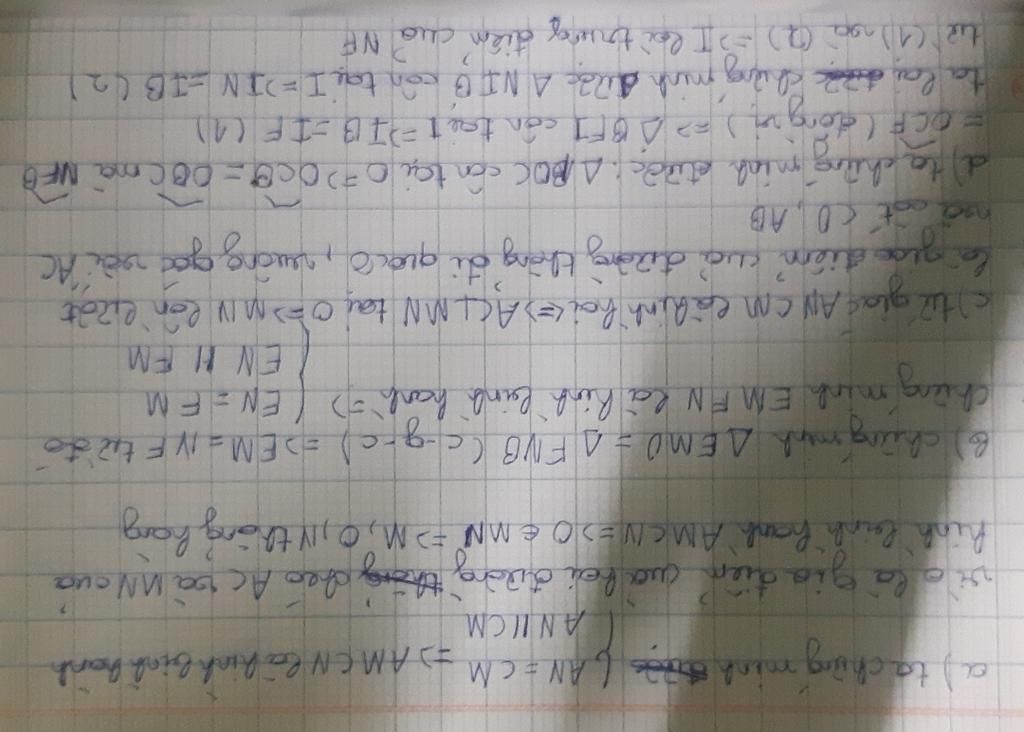 a) ta chứng minh { AN = CM => AMCN là hình bình hành
AN // CM
vì O là giao điểm của hai đường chéo AC và MN của
hình bình hành AMCN => O ∈ MN => M, O, N thẳng hàng
b) chứng minh Δ EMD = Δ FNB (c-g-c) => EM = NF từ đó
chứng minh EMFN là hình bình hành => { EN = FM
EN // FM
c) tứ giác ANCM là hình thoi <=> AC ⊥ MN tại O => MN lần lượt
là giao điểm của đường thẳng đi qua O, vuông góc với AC
và cắt CD, AB
d) ta chứng minh được: Δ BOC cân tại O => OCB = OBC mà NFB
= OCF (đồng vị) => Δ BFI cân tại I => IB = IF (1)
ta lại chứng minh được Δ NIB cân tại I => IN = IB (2)
từ (1) và (2) => I là trung điểm của NF